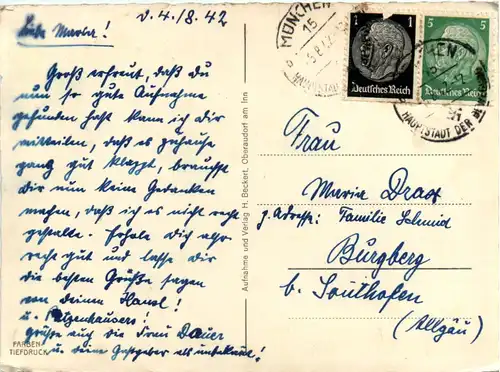 d. 4./8. 42
Liebe Maria!
Groß erfreut, daß Du
nun so gute Aufnahme
gefunden hast kann ich dir
mitteilen, daß es zuhause
ganz gut klappt, brauchst
Dir nun keine Gedanken
machen, daß ich es nicht recht
gestalte. Erhole Dich aber
recht gut und lasse dir
die besten Grüße sagen
von deinem Hansl!
u.
grüße auch die Frau Dauer
u. deine Gastgeber als unbekannt!
FARBEN-
TIEFDRUCK
Aufnahme und Verlag H. Beckert, Oberaudorf am Inn
MÜNCHEN
15
HAUPTSTADT
1 1
Deutsches Reich
5 5
Deutsches Reich
HAUPTSTADT DER
Frau
Maria Drax
z. Adresse: Familie Schmid
Burgberg
b. Sonthofen
(Allgäu)